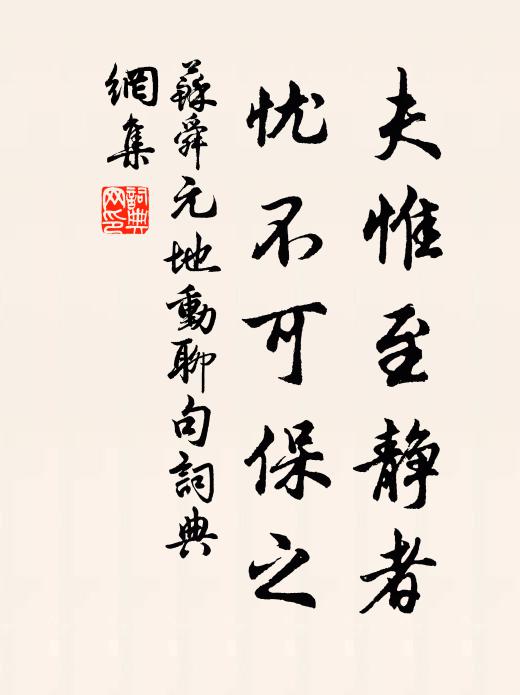 夫惟至静者
忧不可保之
蘇舜元地動聊句詞典
網集
詞典
网印